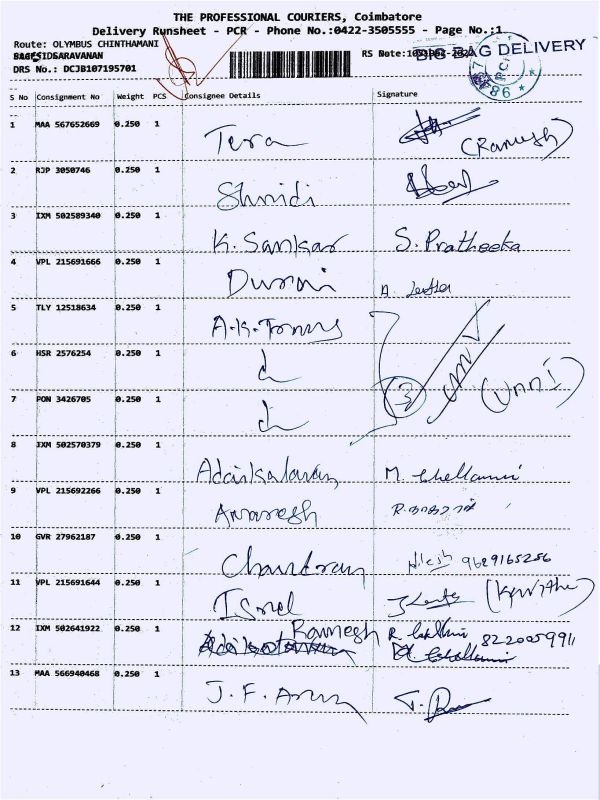 THE PROFESSIONAL COURIERS, Coimbatore
Delivery Runsheet - PCR - Phone No.:0422-3505555 - Page No.:1
Route: OLYMBUS CHINTHAMANI
SARAVANAN
RS Note:
BIG BAG DELIVERY
DRS No.: DCJB107195701
S No Consignment No Weight PCS Consignee Details Signature
1 MAA 567652669 0.250 1 Tera (Ramesh)
2 RJP 3050746 0.250 1
3 IXM 502589340 0.250 1 K. Sankar S. Pratheeka
4 VPL 215691666 0.250 1 Durai
5 TLY 12518634 0.250 1
6 HSR 2576254 0.250 1 3 (Unni)
7 PON 3426705 0.250 1
8 IXM 502570379 0.250 1 Adaikalavan M. Chellammi
9 VPL 215692266 0.250 1
10 GVR 27962187 0.250 1 Chandran 9629165256
11 VPL 215691644 0.250 1
12 IXM 502641922 0.250 1 Ramesh 8220059911
13 MAA 566940468 0.250 1 J. F. Arun